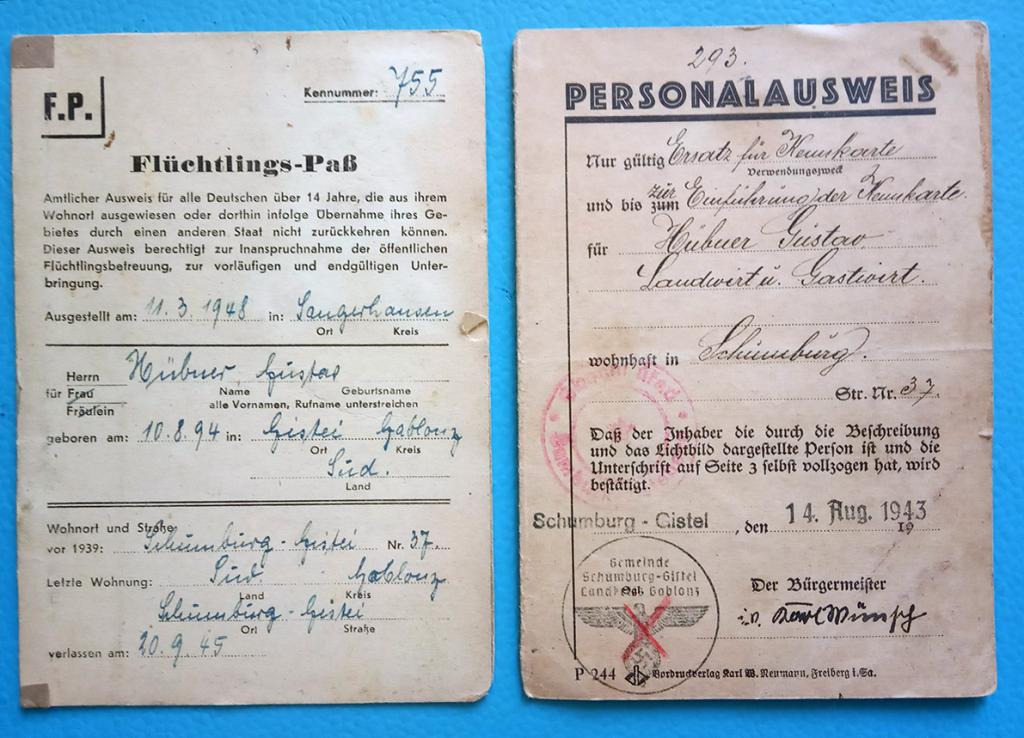 F.P.
Kennummer: 755
Flüchtlings-Paß
Amtlicher Ausweis für alle Deutschen über 14 Jahre, die aus ihrem
Wohnort ausgewiesen oder dorthin infolge Übernahme ihres Ge-
bietes durch einen anderen Staat nicht zurückkehren können.
Dieser Ausweis berechtigt zur Inanspruchnahme der öffentlichen
Flüchtlingsbetreuung, zur vorläufigen und endgültigen Unter-
bringung.
Ausgestellt am: 11.3.1948 in: Sangerhausen
Ort Kreis
Herrn
für Frau
Fräulein
Hübner, Gustav
Name Geburtsname
alle Vornamen, Rufname unterstreichen
geboren am: 10.8.94 in: Gistei Gablonz
Ort Kreis
Süd.
Land
Wohnort und Straße
vor 1939: Schumburg-Gistei Nr. 37.
Letzte Wohnung: Süd Gablonz
Land Kreis
Schumburg-Gistei
Ort Straße
verlassen am: 20.9.45
293.
PERSONALAUSWEIS
Nur gültig Ersatz für Kennkarte
Verwendungszweck
und bis zum zur Einführung der Kennkarte.
für Hübner Gustav
Landwirt u. Gastwirt.
wohnhaft in Schumburg.
Str. Nr. 37.
Daß der Inhaber die durch die Beschreibung
und das Lichtbild dargestellte Person ist und die
Unterschrift auf Seite 3 selbst vollzogen hat, wird
bestätigt.
Schumburg - Gistel, den 14. Aug. 1943
19
Gemeinde
Schumburg-Gistel
Gablonz
Der Bürgermeister
i.V. Karl Wünsch
P 244 Vordruckverlag Karl W. Neumann, Freiberg i. Sa.